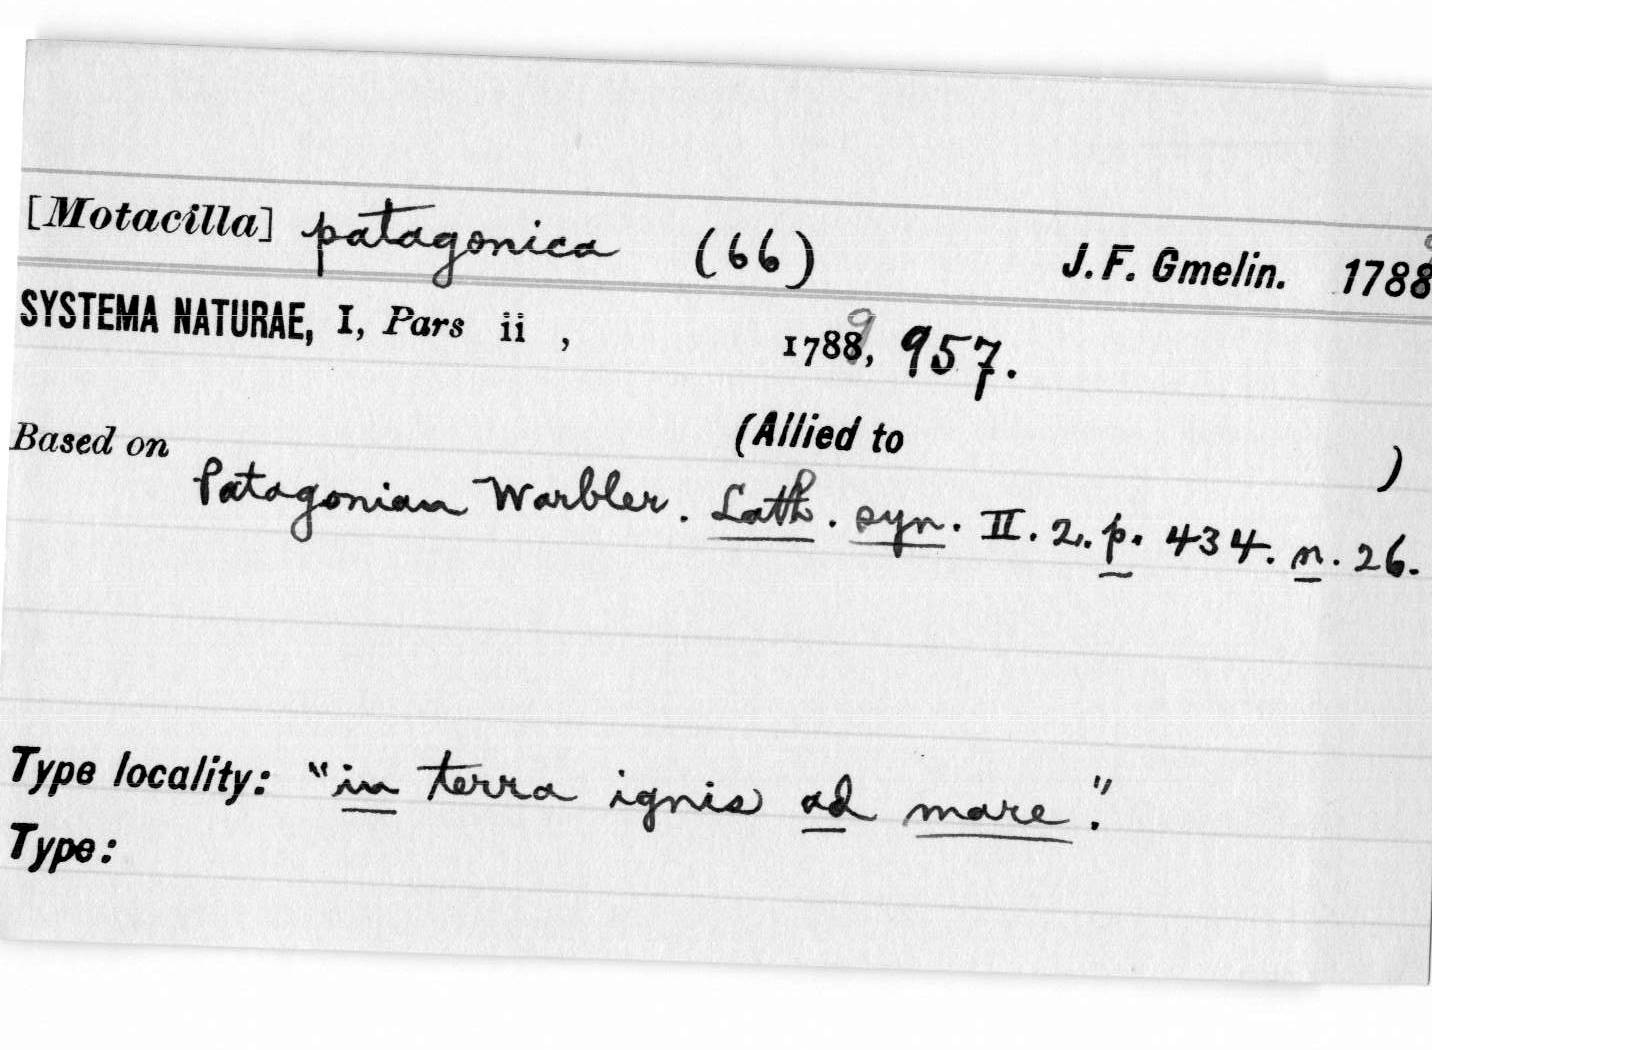 [Motacilla] patagonica (66) J. F. Gmelin. 1788 9
SYSTEMA NATURAE, I, Pars ii , 1788, 9 957.
(Allied to )
Based on
Patagonian Warbler. Lath. syn. II. 2. p. 434. n. 26.
Type locality: "in terra ignis ad mare."
Type: